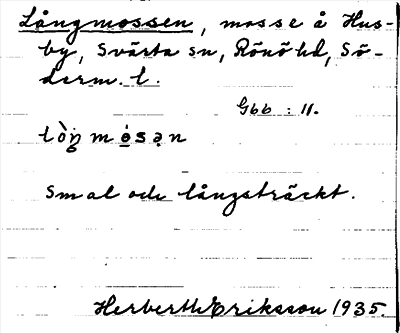 Långmossen, mosse å Hus-
by, Svärta sn, Rönö hd, Sö-
derm. l.
Gbb : 11.
lòŋmósan
Smal och långsträckt.
Herberth Eriksson 1935.